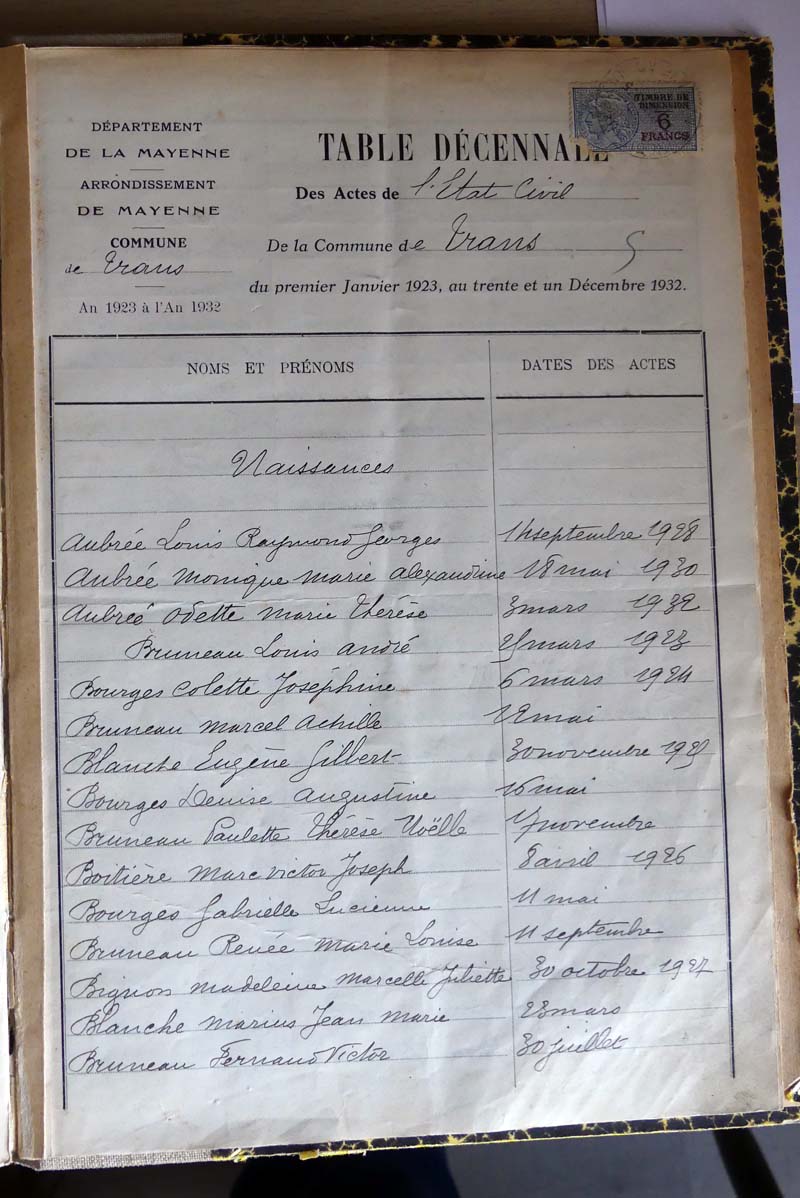 DÉPARTEMENT
DE LA MAYENNE
ARRONDISSEMENT
DE MAYENNE
COMMUNE
de Trans
An 1923 à l'An 1932
TIMBRE DE
DIMENSION
6
FRANCS
TABLE DÉCENNALE
Des Actes de l'Etat Civil
De la Commune de Trans
du premier Janvier 1923, au trente et un Décembre 1932.
NOMS ET PRÉNOMS DATES DES ACTES
Naissances
Aubrée Louis Raymond Georges septembre 1928
Aubrée Monique Marie Alexandrine 18 mai 1930
Aubrée Odette Marie Thérèse 3 mars 1932
Bruneau Louis André mars 1923
Bourges Colette Joséphine 6 mars 1924
Bruneau Marcel Achille 12 mai
Blanche Eugène Gilbert 30 novembre 1925
Bourges Denise Augustine 16 mai
Bruneau Paulette Thérèse Noëlle 17 novembre
Boitière Marc Victor Joseph 8 avril 1926
Bourges Gabrielle Lucienne 11 mai
Bruneau Renée Marie Louise 11 septembre
Bignon Madeleine Marcelle Juliette 30 octobre 1927
Blanche Marius Jean Marie 23 mars
Bruneau Fernand Victor 30 juillet